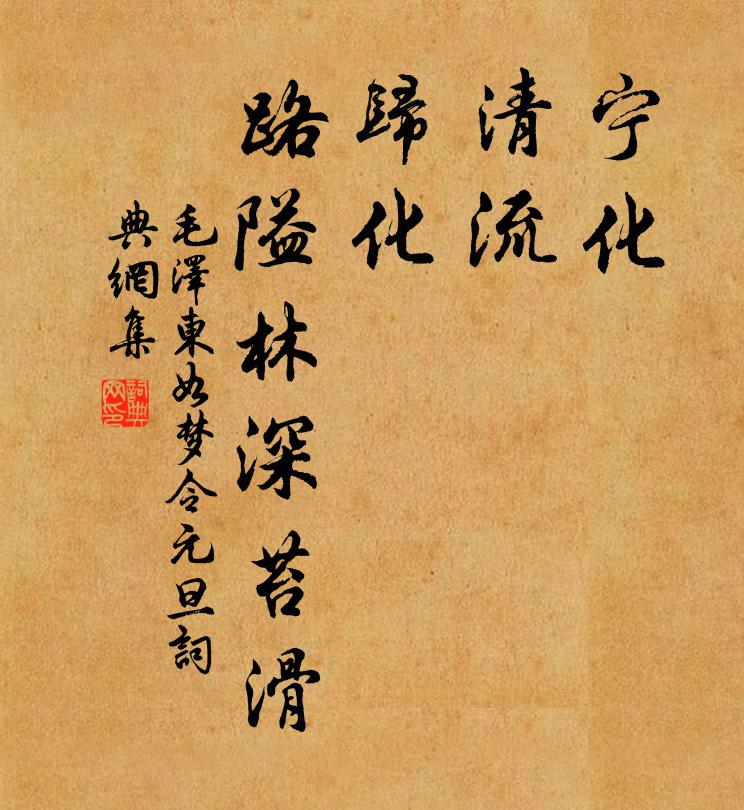 宁化
清流
歸化
路隘林深苔滑
毛澤東如梦令元旦詞
典網集
詞典网印